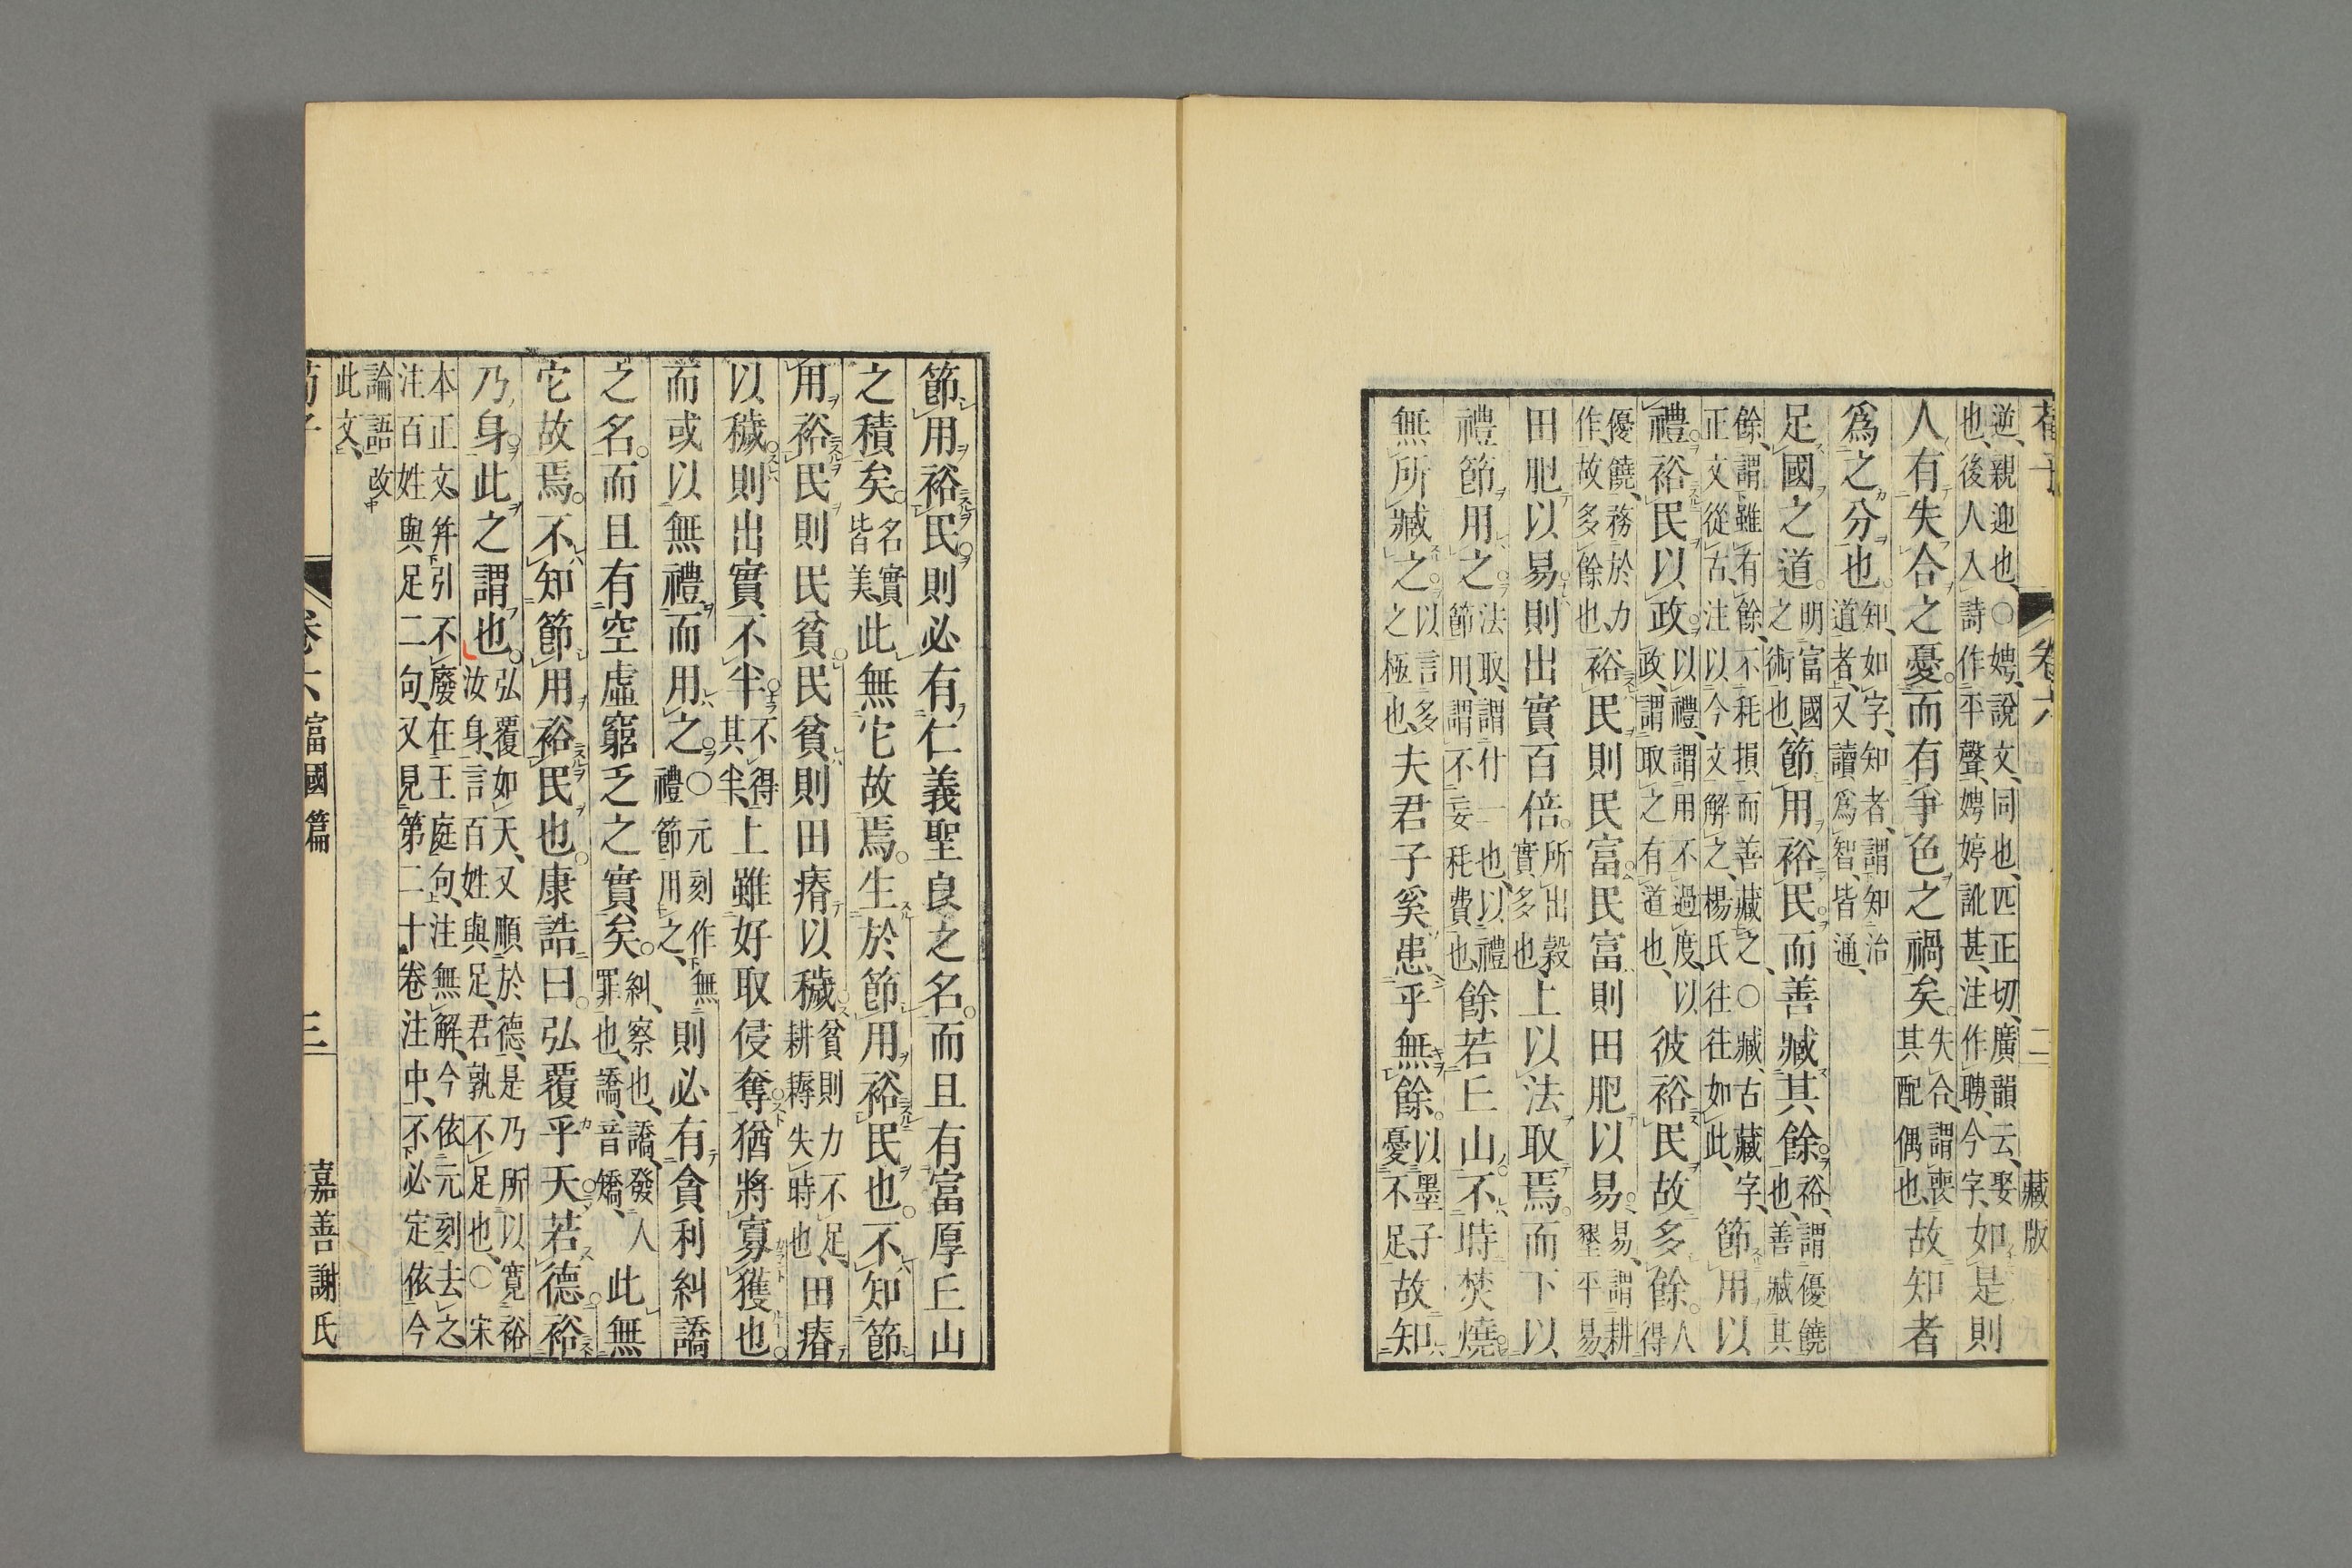 荀子 卷六 二 藏版
逆、親迎也、○娉、說文、同也、匹正切、廣韻云、娶也、後人入詩作平聲、娉婷訛甚、注作聘、今字、如是則
人有失合之憂。而有爭色之禍矣。失合、謂喪其配偶也、故知者
爲之分也。知、如字、知者、謂知治道者、又讀爲智、皆通、
足國之道。明富國之術也、節用裕民。而善臧其餘。裕、謂優饒也、善臧其
餘、謂雖有餘、不秏損而善藏之、○臧、古藏字、正文從古、注以今文解之、楊氏往往如此、節用以
禮。裕民以政。以禮、謂用不過度、以政、謂取之有道也、彼裕民故多餘。人得
優饒、務於力作、故多餘也、裕民則民富。民富則田肥以易。易、謂耕墾平易、
田肥以易。則出實百倍。所出穀實多也、上以法取焉。而下以
禮節用之。法取、謂什一也、以禮節用、謂不妄秏費也、餘若丘山。不時焚燒。
無所臧之。以言多之極也、夫君子奚患乎無餘。以墨子憂不足、故知
節用裕民。則必有仁義聖良之名。而且有富厚丘山
之積矣。名實皆美、此無它故焉。生於節用裕民也。不知節
用裕民則民貧。民貧則田瘠以穢。貧則力不足、耕耨失時也、田瘠
以穢。則出實不半。不得其半、上雖好取侵奪。猶將寡獲也。
而或以無禮而用之。○元刻作無禮節用之、則必有貪利糾譑
之名。而且有空虛窮乏之實矣。糾、察也、譑、發人罪也、譑、音矯、此無
它故焉。不知節用裕民也。康誥曰。弘覆乎天。若德。裕
乃身。此之謂也。弘覆如天、又順於德、是乃所以寬裕汝身、言百姓與足、君孰不足也、○宋
本正文、幷引不廢在王庭句、注無解、今依元刻去之、注百姓與足二句、又見第二十卷注中、不必定依今
論語改此文、
荀子 卷六 富國篇 三 嘉善謝氏